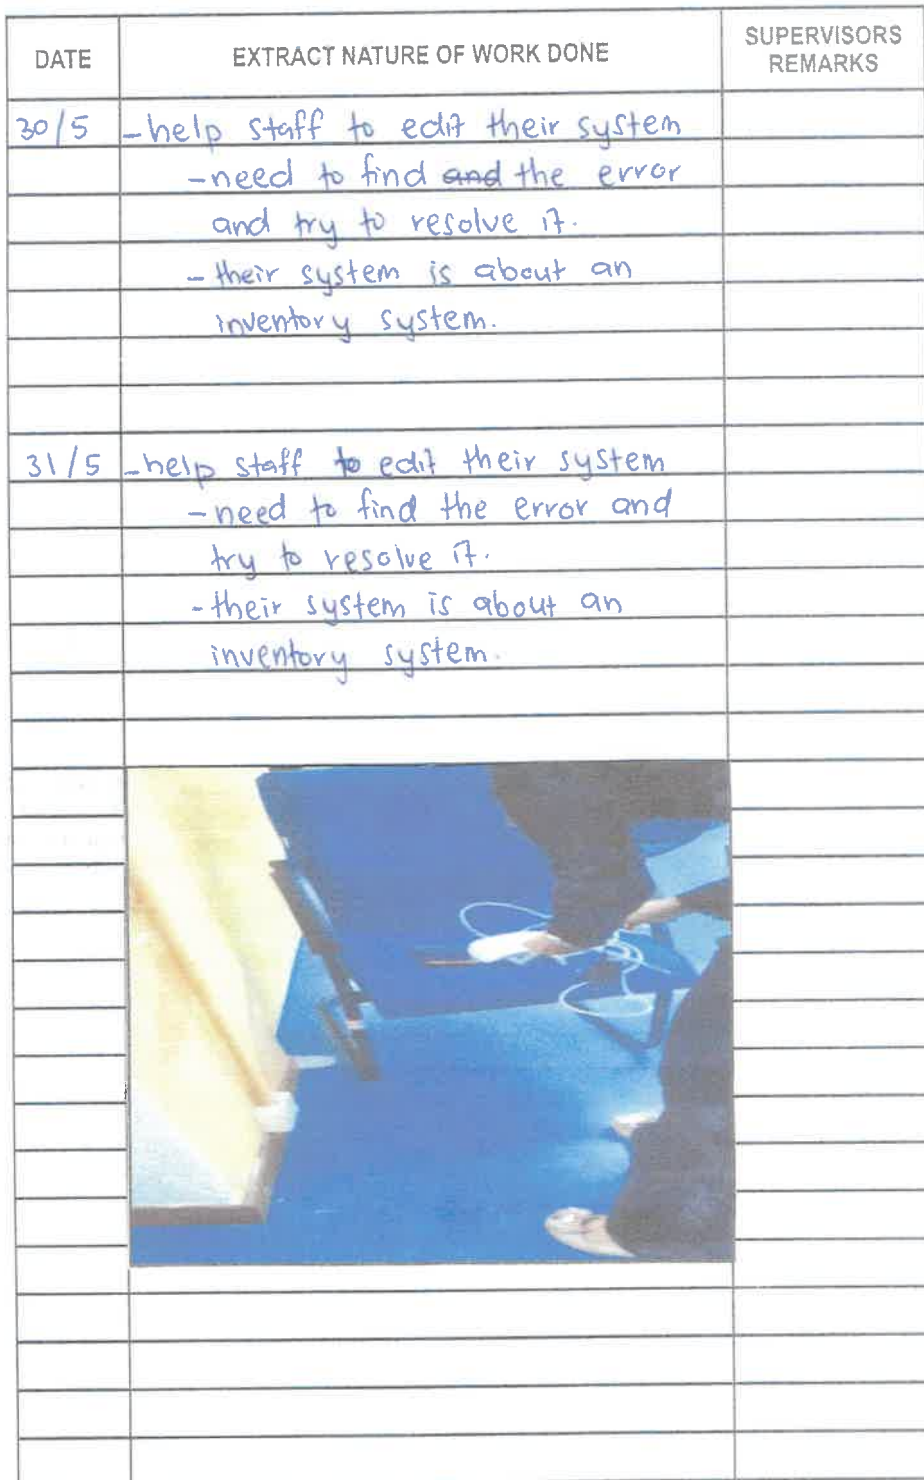 DATE EXTRACT NATURE OF WORK DONE SUPERVISORS REMARKS
30/5 -help staff to edit their system
-need to find and the error
and try to resolve it.
-their system is about an
inventory system.
31/5 -help staff to edit their system
-need to find the error and
try to resolve it.
-their system is about an
inventory system.